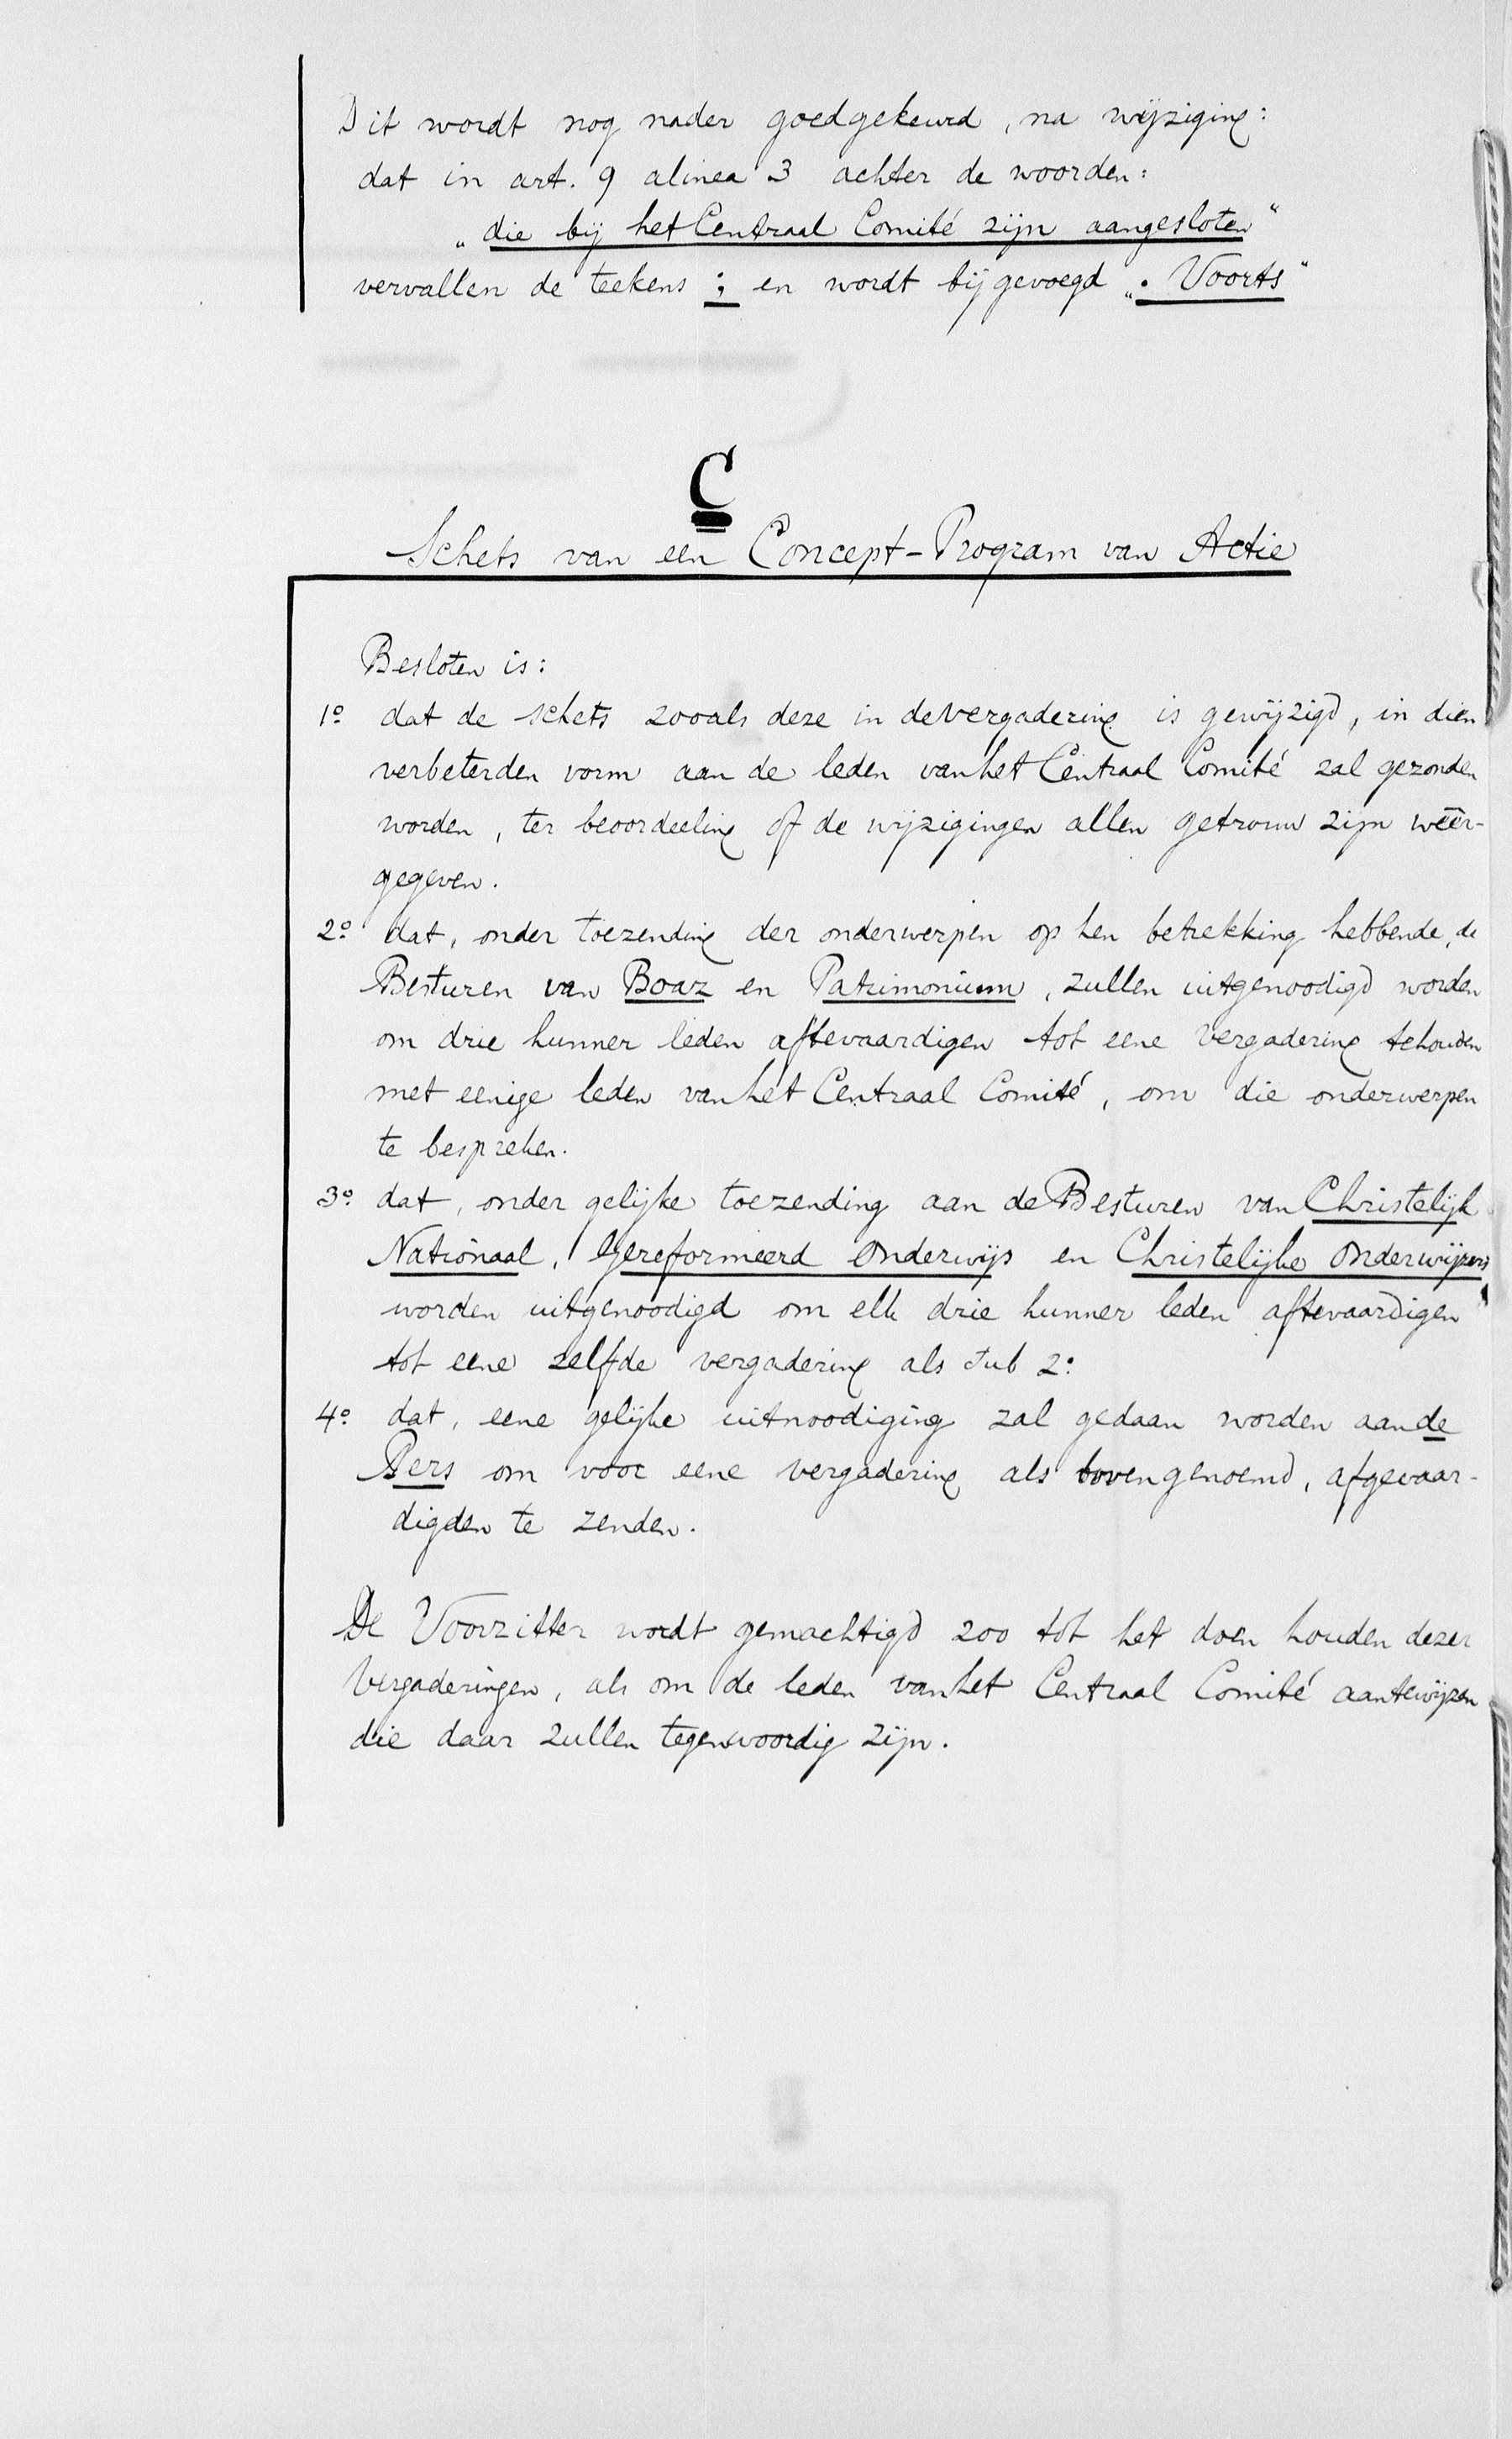 Dit wordt nog nader goedgekeurd, na wijziging:
dat in art. 9 alinea 3 achter de woorden:
„die bij het Centraal Comité zijn aangesloten"
vervallen de teekens ; en wordt bijgevoegd „. Voorts"
C
Schets van een Concept-Program van Actie
Besloten is:
1o dat de schets zooals deze in de vergadering is gewijzigd, in dien
verbeterden vorm aan de leden van het Centraal Comité zal gezonden
worden, ter beoordeeling of de wijzigingen allen getrouw zijn weêr-
gegeven.
2o dat, onder toezending der onderwerpen op hen betrekking hebbende, de
Besturen van Boaz en Patrimonium, zullen uitgenoodigd worden
om drie hunner leden aftevaardigen tot eene vergadering te houden
met eenige leden van het Centraal Comité, om die onderwerpen
te bespreken.
3o dat, onder gelijke toezending aan de Besturen van Christelijk
Nationaal, Gereformeerd Onderwijs en Christelijke Onderwijzers,
worden uitgenoodigd om elk drie hunner leden aftevaardigen
tot eene zelfde vergadering als sub 2o
4o dat, eene gelijke uitnoodiging zal gedaan worden aan de
Pers om voor eene vergadering als bovengenoemd, afgevaar-
digden te zenden.
De Voorzitter wordt gemachtigd zoo tot het doen houden dezer
Vergaderingen, als om de leden van het Centraal Comité aantewijzen
die daar zullen tegenwoordig zijn.